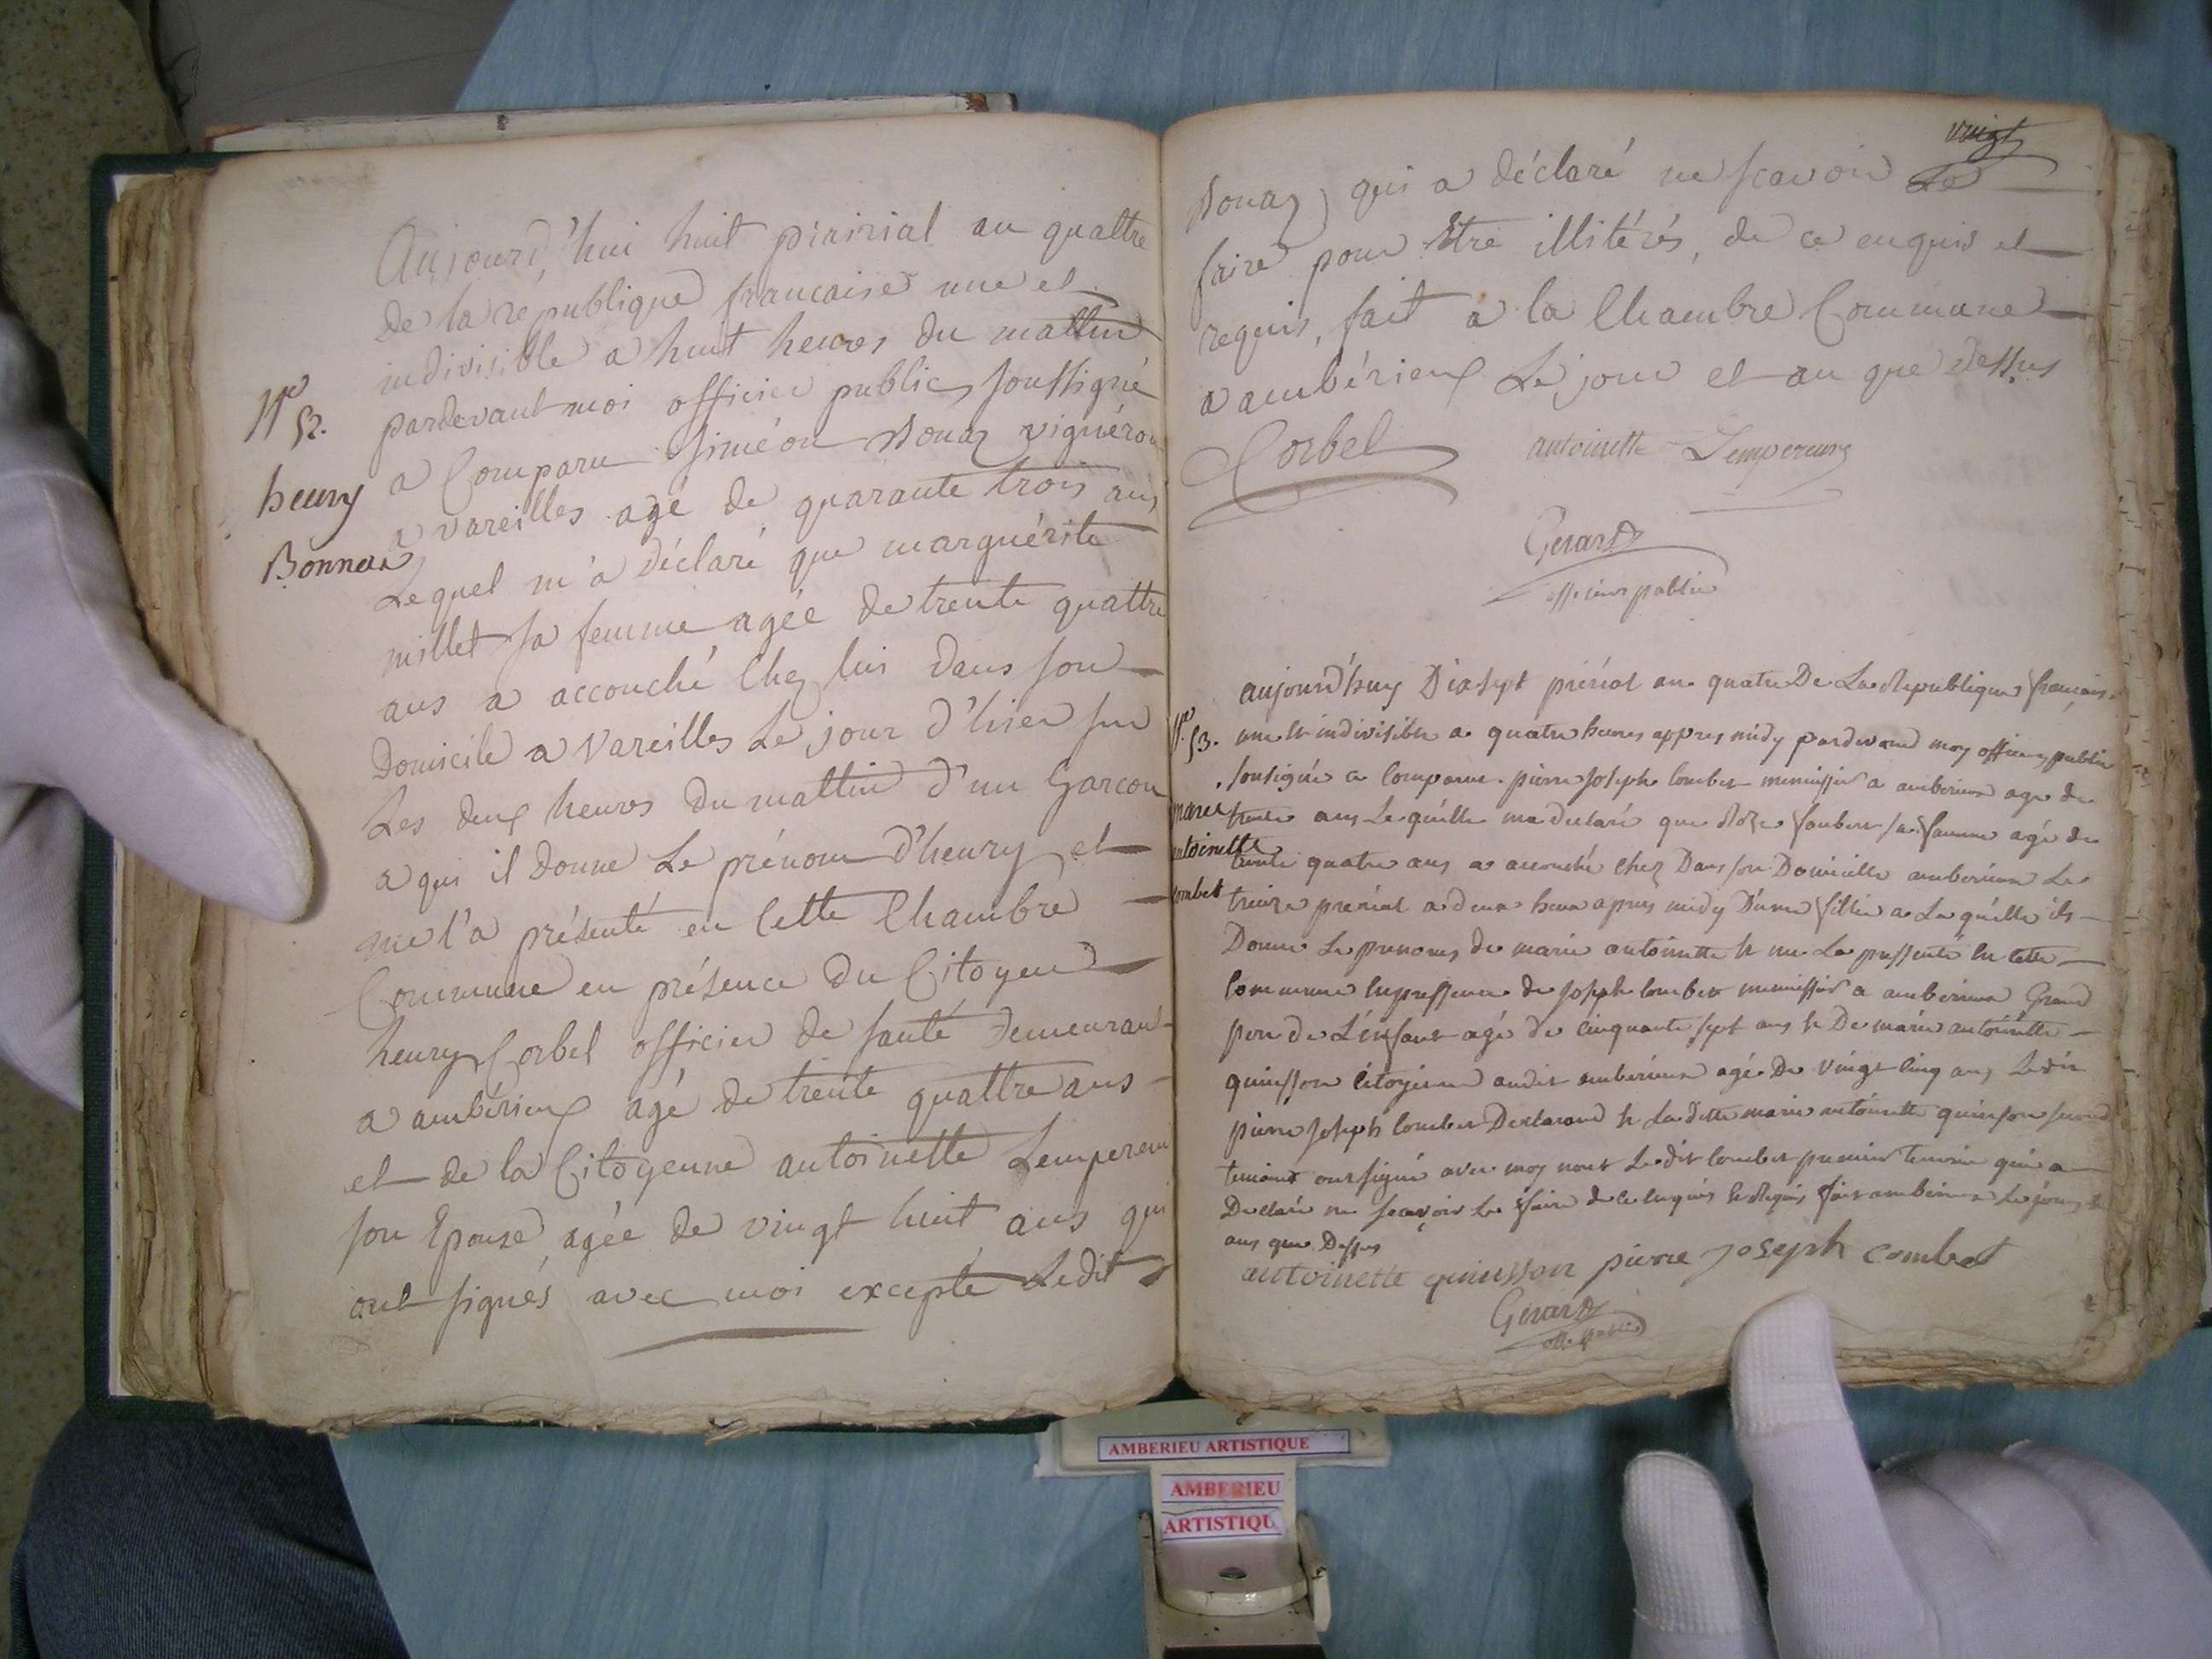 Aujourd'hui huit prairial an quattre
de la république francaise une et
indivisible a huit heures du mattin
pardevant moi officier public soussigné
a Comparu siméon Bonaz vignéron
a vareilles agé de quarante trois ans
Lequel m'a déclaré que marguérite
millet sa femme agée de trente quattre
ans a accouché Chez lui dans son
Domicile a Vareilles Le jour d'hier sur
Les deux heures du mattin d'un Garcon
a qui il donne Le prénom d'heury et
me l'a présenté en Cette Chambre
Commune en présence du Citoyen
heury Corbel officier de santé Demeurant
a ambérieux agé de trente quattre ans
et de la Citoyenne antoinette Lempereur
son Epouse agée de vingt huit ans qui
ont signés avec moi excepté Ledit
No
52.
heury
Bonnaz
vingt
Bonaz qui a déclaré ne scavoir Le
faire pour Etre illitérés, de ce enquis et
requis, fait a la Chambre Commune
a ambérieux Le jour et an que dessus
Corbel antoinette Lempereur
Gerard
officier public
No
53.
marie
antoinette
Combet
aujourd'huy Dixsept prérial an quatre De La Republique francaise
une et indivisible a quatre heures appres midy pardevand moy officier public
sousigné a Comparu pierre Joseph Combet menuissier a amberieux age de
trente ans Le quelle ma declaré que Roze Joubert sa famme agé de
trente quatre ans a acouché chez Dans son Domicille amberieux Le
treize prérial a deux heure apres midy D'une fillie a La quelle ils
Donne Le prenoms de marie antoinette et me La pressenté en Cette
Commune En pressence de Joseph Combet menuissier a amberieux Grand
pere de L'enfant agé de Cinquante sept ans et De marie antoinette
quinsson Citoyenne audit amberieux agé De vingt Cinq ans Ledit
pierre Joseph Combet Declarand et La Ditte marie antoinette quinson second
temoint ont signé avec moy nont Le dit Combet premier temoin qui a
Declaré ne scavoir Le faire de ce Enquis et Requis fait amberieux Le jour et
ans que Dessus
antoinette quinsson pierre Joseph combet
Gerard
off. public
AMBERIEU ARTISTIQUE
AMBERIEU
ARTISTIQU